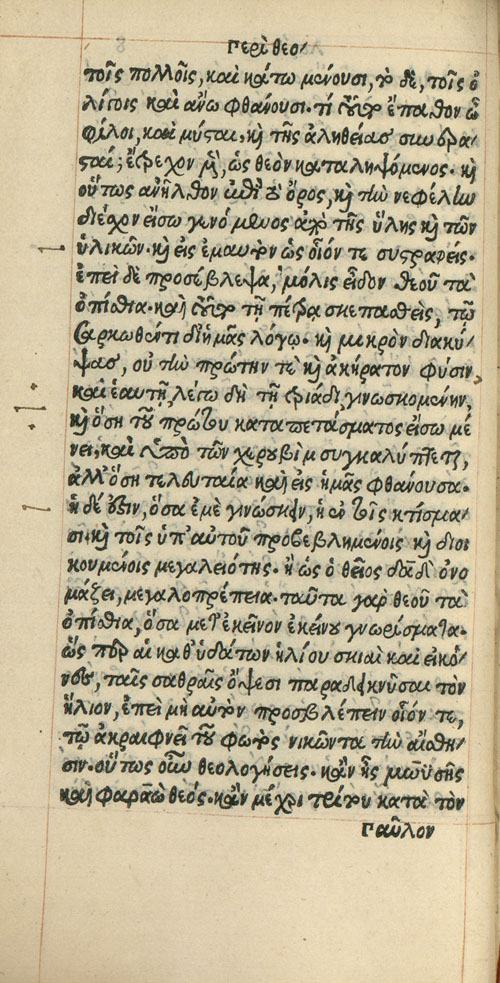 περὶ θεο/
τοῖς πολλοῖς, καὶ κάτω μένουσι, τὸ δὲ, τοῖς ὀ
λίγοις καὶ ἄνω φθάνουσι. τί τοῦτο ἔπαθον ὦ
φίλοι, καὶ μύσται, καὶ τῆς ἀληθείας συνερα-
σταί; ἔτρεχον μὲν, ὡς θεὸν καταληψόμενος. καὶ
οὕτως ἀνῆλθον ἐπὶ τὸ ὄρος, καὶ τὴν νεφέλην
διέσχον εἴσω γενόμενος ἀπὸ τῆς ὕλης καὶ τῶν
ὑλικῶν. καὶ εἰς ἐμαυτὸν ὡς οἷόν τε συστραφείς.
ἐπεὶ δὲ προσέβλεψα, μόλις εἶδον θεοῦ τὰ
ὀπίσθια. καὶ τοῦτο τῇ πέτρᾳ σκεπασθεὶς, τῷ
σαρκωθέντι δι' ἡμᾶς λόγῳ. καὶ μικρὸν διακύ/
ψας, οὐ τὴν πρώτην τε καὶ ἀκήρατον φύσιν,
καὶ ἑαυτῇ, λέγω δὴ τῇ τριάδι, γινωσκομένην,
καὶ ὅση τοῦ πρώτου καταπετάσματος εἴσω μέ
νει, καὶ ὑπὸ τῶν χερουβὶμ συγκαλύπτεται,
ἀλλ' ὅση τελευταία καὶ εἰς ἡμᾶς φθάνουσα.
ἡ δέ ἐστιν, ὅσα ἐμὲ γινώσκειν, ἡ ἐν τοῖς κτίσμα/
σι καὶ τοῖς ὑπ' αὐτοῦ προβεβλημένοις καὶ διοι
κουμένοις μεγαλειότης. ἢ ὡς ὁ θεῖος δαδ ὀνο
μάζει, μεγαλοπρέπεια. ταῦτα γὰρ θεοῦ τὰ
ὀπίσθια, ὅσα μετ' ἐκεῖνον ἐκείνου γνωρίσματα.
ὥσπερ αἱ καθ' ὑδάτων ἡλίου σκιαὶ καὶ εἰκό/
νες, ταῖς σαθραῖς ὄψεσι παραδεικνῦσαι τὸν
ἥλιον, ἐπεὶ μὴ αὐτὸν προσβλέπειν οἷόν τε,
τῷ ἀκραιφνεῖ τοῦ φωτὸς νικῶντα τὴν αἴσθη/
σιν. οὕτως οὖν θεολογήσεις. κἂν ᾖς μωϋσῆς
καὶ φαραὼ θεός. κἂν μέχρι τρίτου κατὰ τὸν
παῦλον